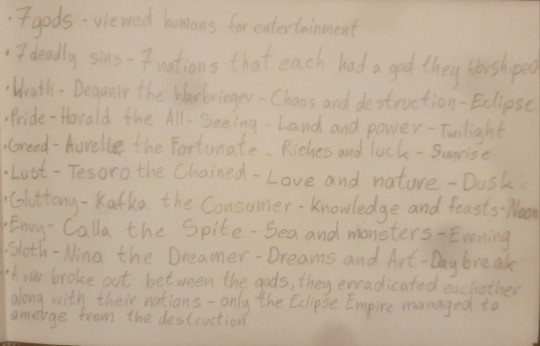 • 7 gods - viewed humans for entertainment
• 7 deadly sins - 7 nations that each had a god they worshiped
• Wrath - Deganir the Warbringer - Chaos and destruction - Eclipse
• Pride - Harald the All-Seeing - Land and power - Twilight
• Greed - Aurelle the Fortunate - Riches and luck - Sunrise
• Lust - Tesoro the Chained - Love and nature - Dusk
• Gluttony - Kafka the Consumer - Knowledge and feasts - Noon
• Envy - Calla the Spite - Sea and monsters - Evening
• Sloth - Nina the Dreamer - Dreams and Art - Daybreak
• A war broke out between the gods, they erradicated eachother
along with their nations - only the Eclipse Empire managed to
emerge from the destruction